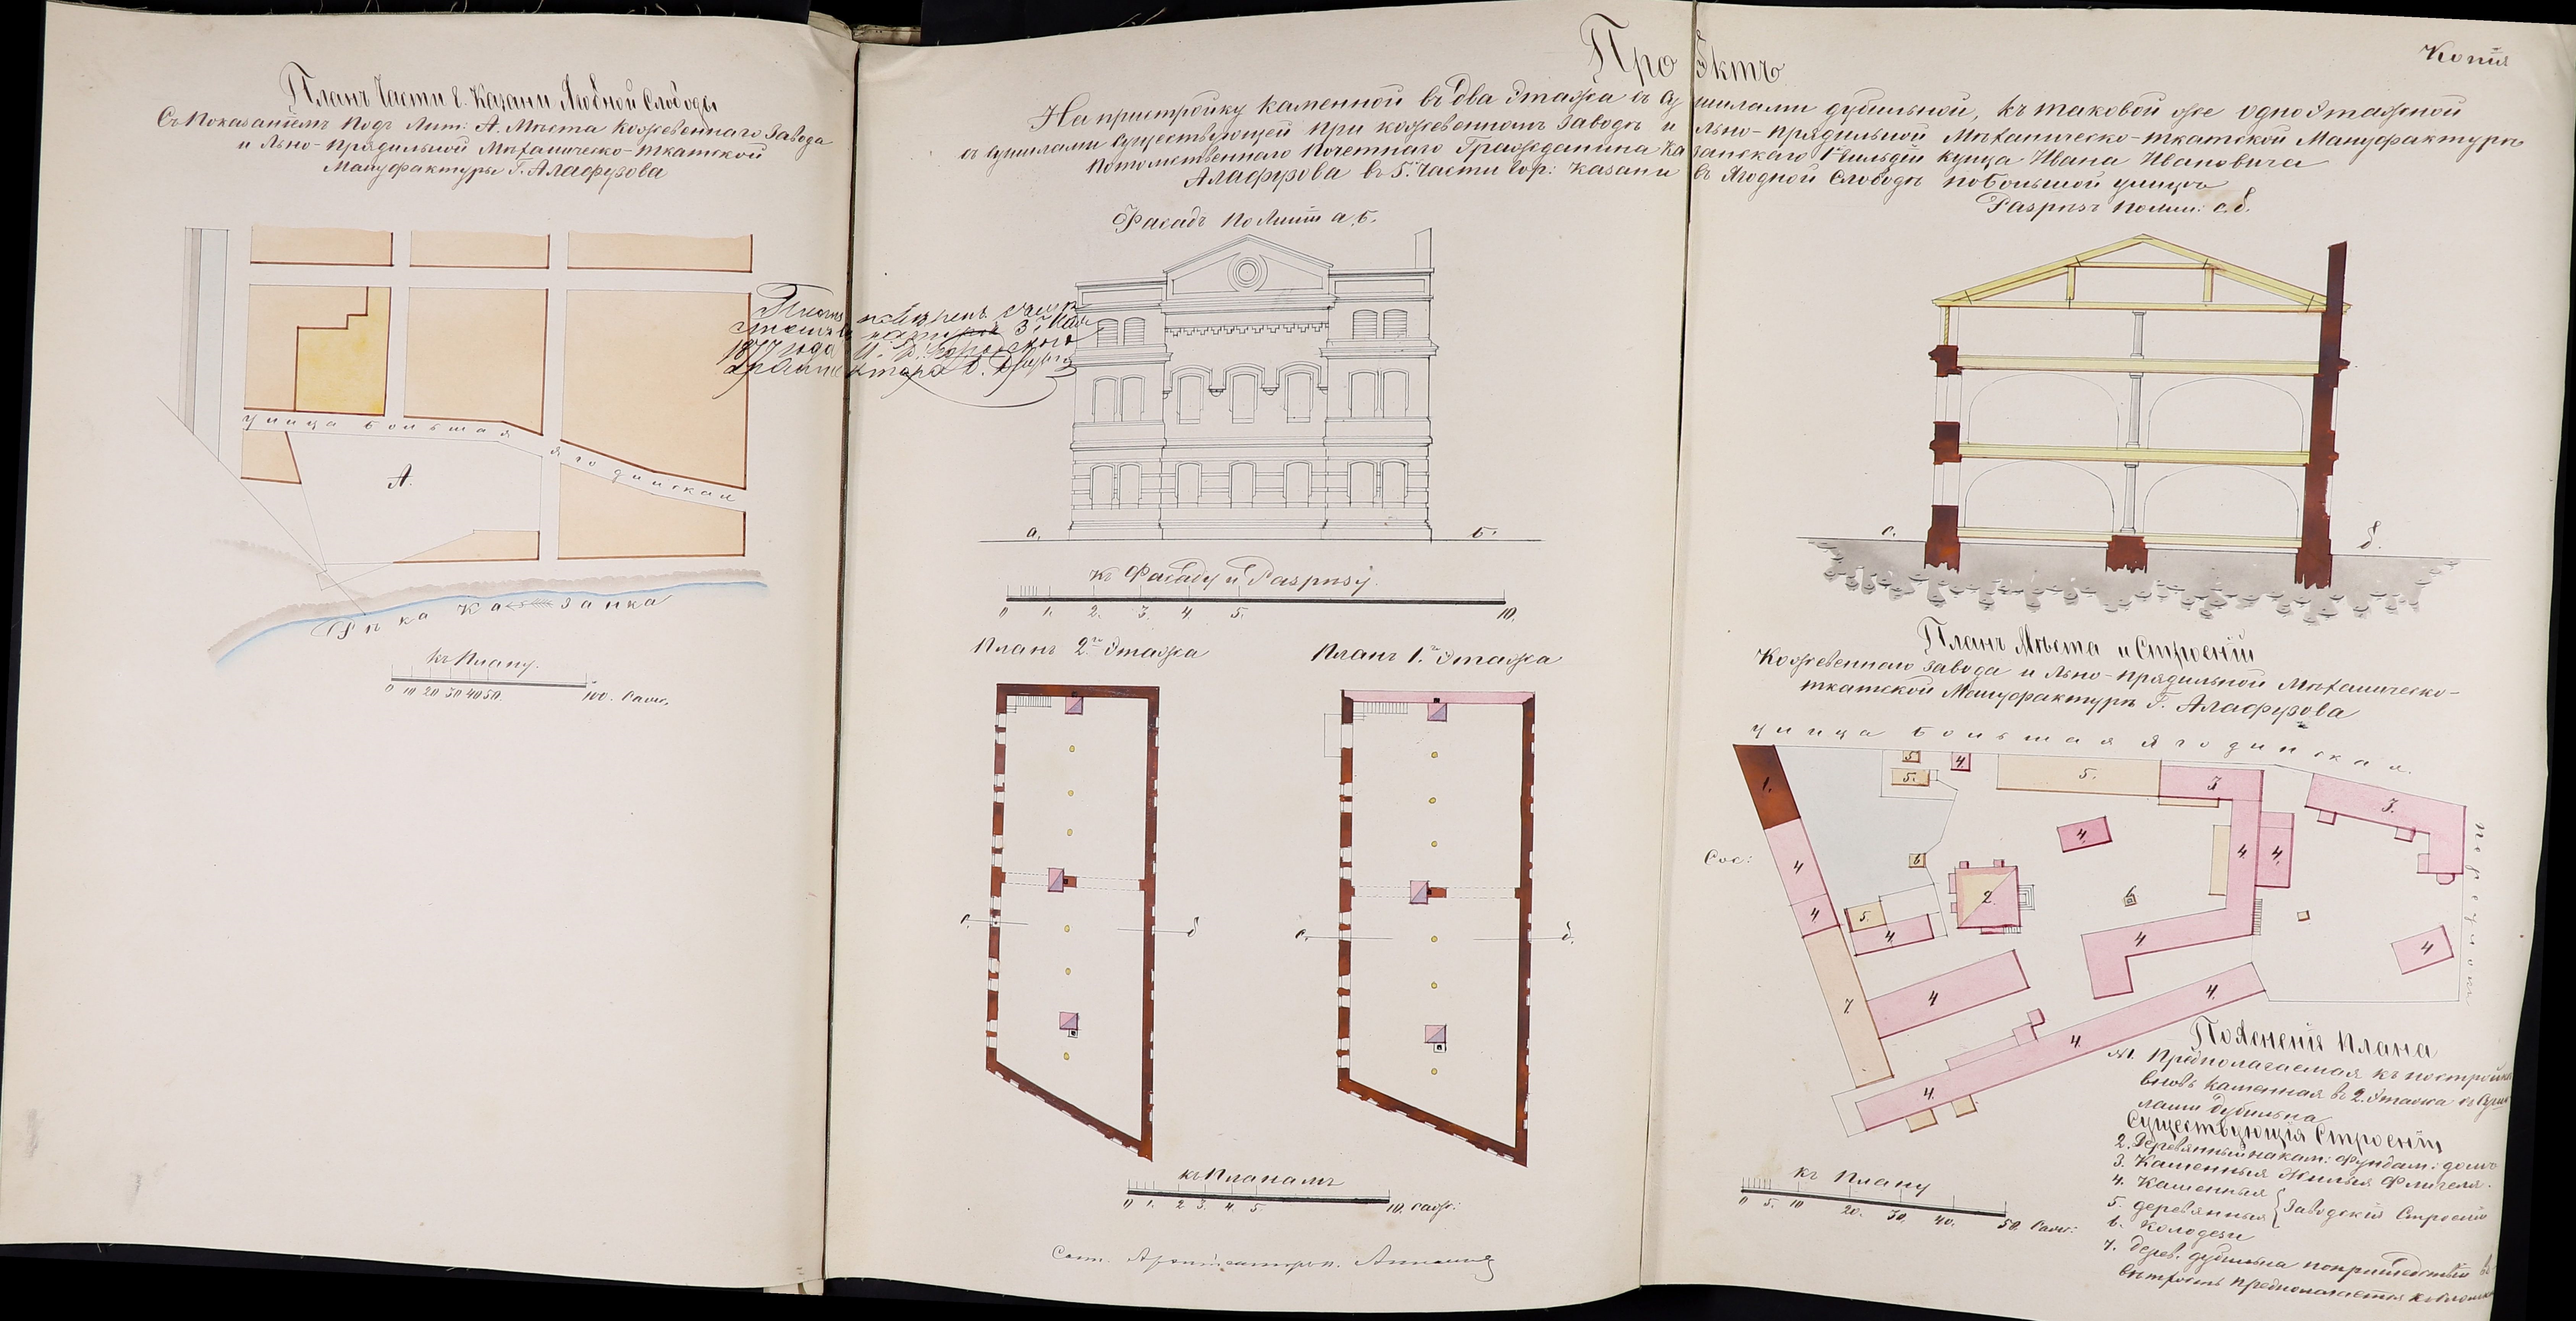 Планъ Части г. Казани Ягодной Слободы
Съ Показаніемъ Подъ Лит: А. Мѣста Кожевеннаго Завода
и Льно-прядильной Механическо-ткатской
Мануфактуры Г. Алафузова
улица Большая Ягодинская
А.
Рѣка Казанка
къ Плану.
0 10 20 30 40 50. 100. Саж.
Проэктъ
Копія
На пристройку каменной въ два этажа съ сушилами дубильной, къ таковой же одноэтажной
съ сушилами существующей при кожевенномъ заводѣ и льно-прядильной Механическо-ткатской Мануфактурѣ
Потомственнаго Почетнаго Гражданина Казанскаго 1й Гильдіи купца Ивана Ивановича
Алафузова въ 5й Части гор: Казани въ Ягодной Слободѣ по Большой улицѣ
Фасадъ по Линіи а, б.
3го Мая
1877 года
архитектора
а. б.
къ Фасаду и Разрѣзу.
0 1. 2. 3. 4. 5. 10.
Планъ 2го Этажа
Планъ 1го Этажа
с. д
с. д.
къ Планамъ
0 1. 2 3. 4. 5. 10. саж:
Разрѣзъ по лин: с. д.
с. д.
Планъ Мѣста и Строеній
Кожевеннаго завода и Льно-прядильной Механическо-
ткатской Мануфактуры Г. Алафузова
улица Большая Ягодинская.
1. 5 5. 4. 5. 3 3.
4 6 4. 4. 4.
Сос:
переулокъ
4 5. 4 2. 6 4 4
7 4 4.
4.
4.
къ Плану
0 5. 10 20. 30. 40. 50 Саж:
Поясненіе Плана
№1. Предполагаемая къ постройкѣ
вновь каменная въ 2. этажа съ суши
лами дубильна
Существующія Строенія
2. Деревянный на кам: фундам: домъ
3. Каменныя Жилыя Флигеля.
4. Каменныя
5. деревянныя } Заводскія Строенія
6. Колодези
7. дерев. дубильна по пришедствіи въ
ветхость предполагается къ